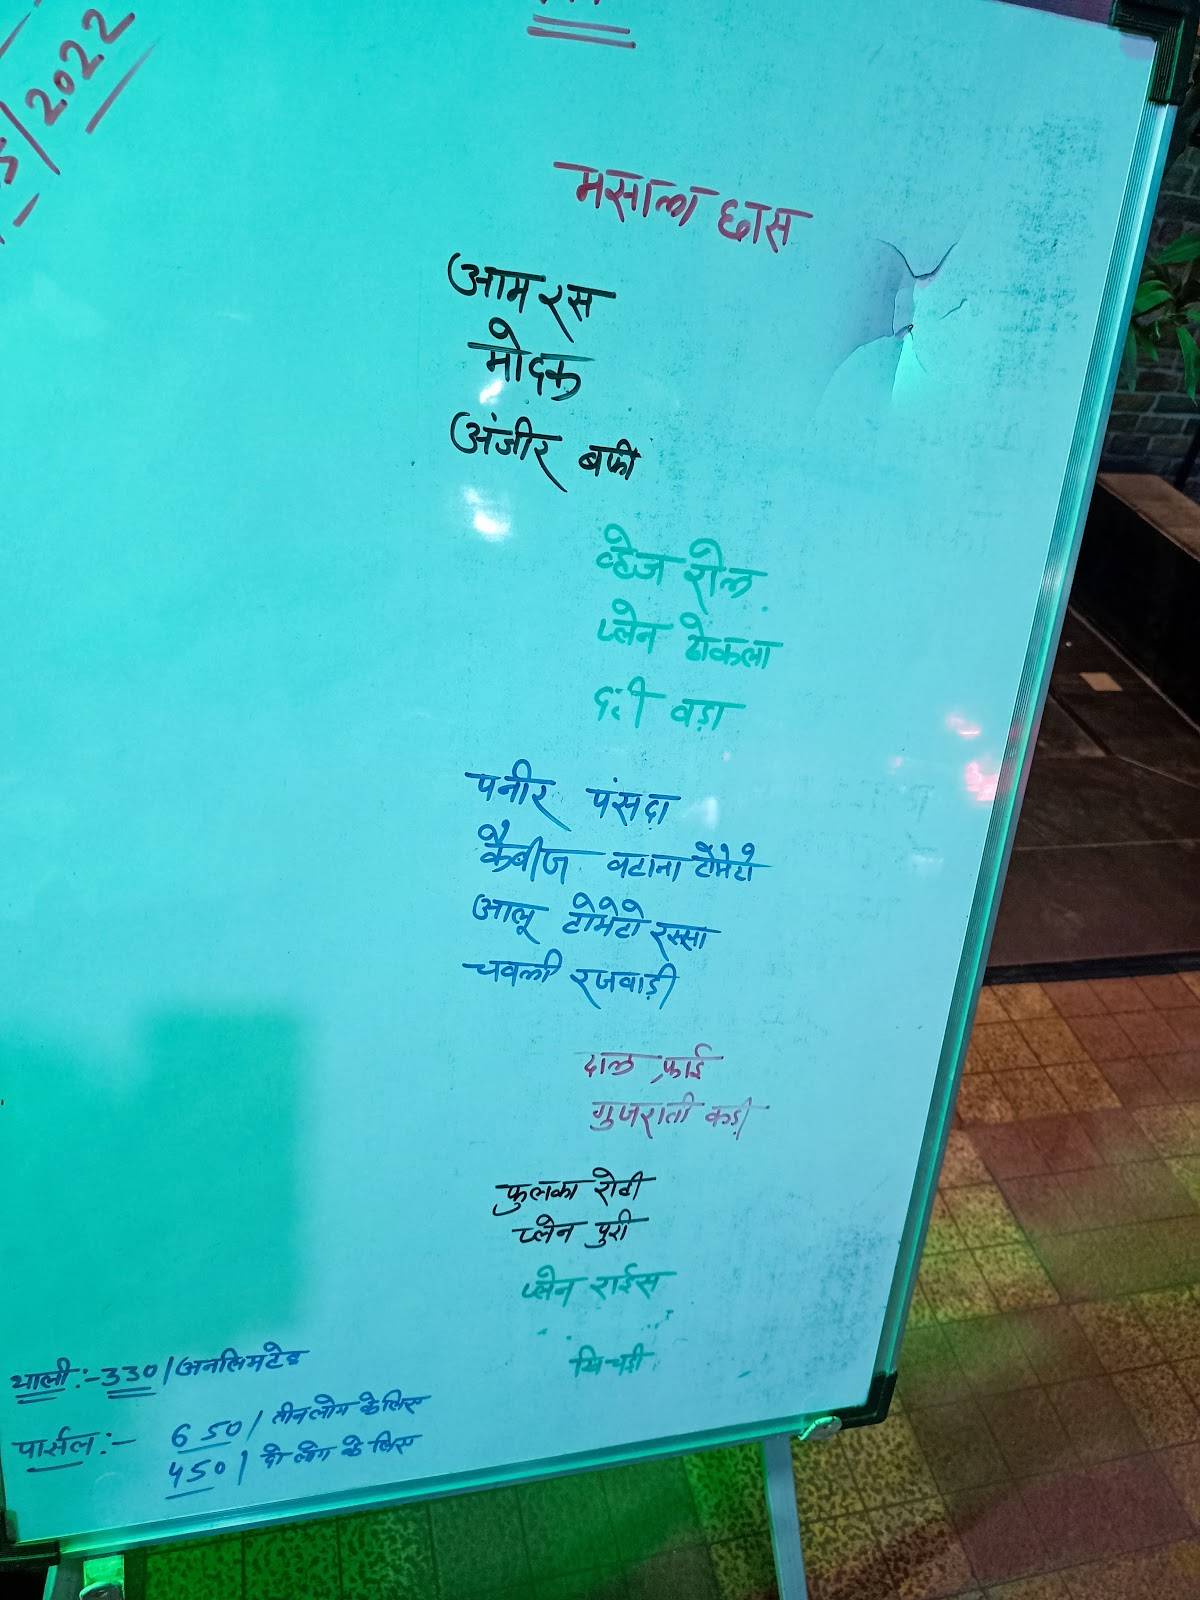 /2022
मसाला छास
आमरस
मोदक
अंजीर बर्फी
व्हेज रोल
प्लेन ढोकला
दही वडा
पनीर पंसदा
कैबीज वटाना टोमेटो
आलू टोमेटो रस्सा
चवली रजवाड़ी
दाल फ्राई
गुजराती कड़ी
फुलका रोटी
प्लेन पुरी
प्लेन राईस
खिचड़ी
थाली:-330/अनलिमटेड
पार्सल:- 650/ तीन लोग के लिए
450/ दो लोग के लिए